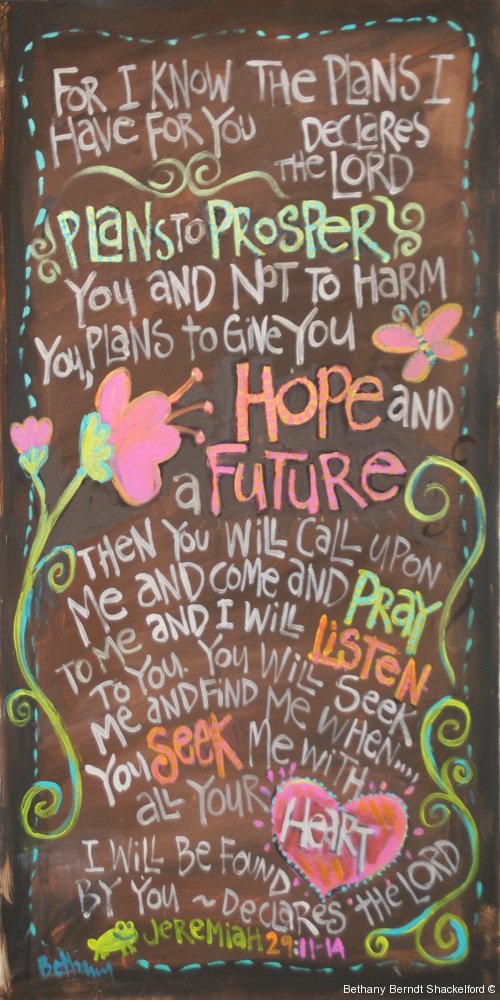 FOR I KNOW THE PLANS I
HAVE FOR YOU DECLARES
THE LORD
PLANS TO PROSPER
YOU AND NOT TO HARM
YOU, PLANS TO GIVE YOU
HOPE AND
a FUTURE
THEN YOU WILL CALL UPON
ME AND COME AND PRAY
TO ME AND I WILL LISTEN
TO YOU. YOU WILL SEEK
ME AND FIND ME WHEN....,
YOU SEEK ME WITH
ALL YOUR HEART
I WILL BE FOUND
BY YOU ~ DECLARES THE LORD
JEREMIAH 29:11-14
Bethany
Bethany Berndt Shackelford ©